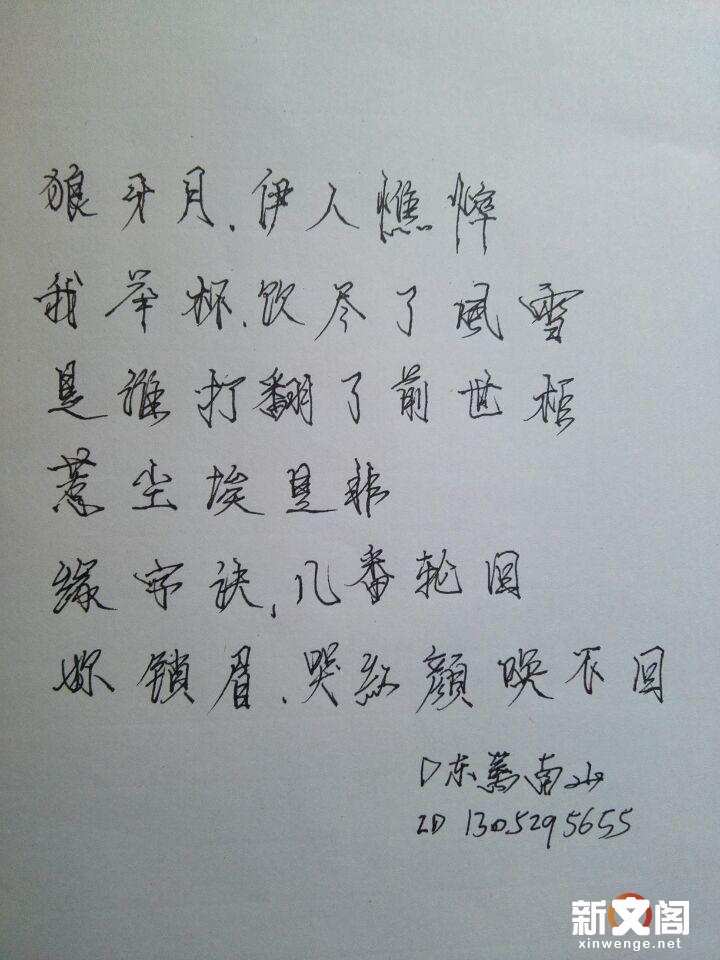 狼牙月,伊人憔悴
我举杯,饮尽了風雪
是谁打翻了前世柜
惹尘埃是非
缘字诀,几番轮回
妳锁眉,哭红颜唤不回
东篱南山
ID 1305295655
新文阁
xinwenge.net